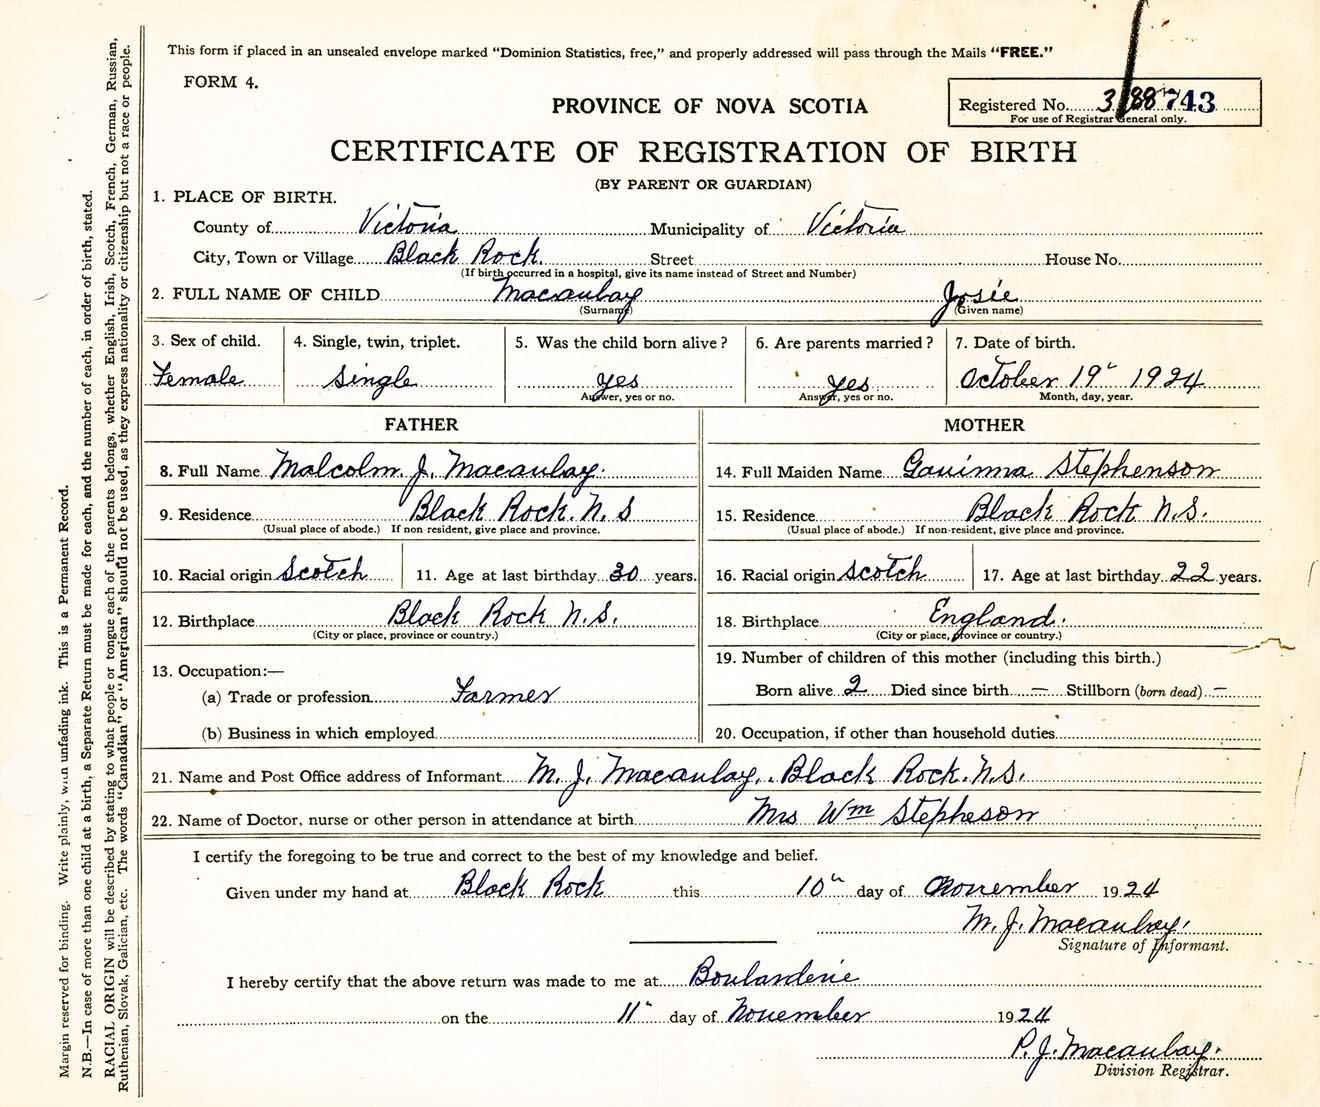 This form if placed in an unsealed envelope marked "Dominion Statistics, free," and properly addressed will pass through the Mails "FREE."
FORM 4.
PROVINCE OF NOVA SCOTIA
Registered No. 743
For use of Registrar General only.
CERTIFICATE OF REGISTRATION OF BIRTH
(BY PARENT OR GUARDIAN)
1. PLACE OF BIRTH.
County of Victoria Municipality of Victoria
City, Town or Village Black Rock. Street House No.
(If birth occurred in a hospital, give its name instead of Street and Number)
2. FULL NAME OF CHILD Macaulay Josie
(Surname) (Given name)
3. Sex of child. 4. Single, twin, triplet. 5. Was the child born alive? 6. Are parents married? 7. Date of birth.
Female Single yes yes October 19" 1924
Answer, yes or no. Answer, yes or no. Month, day, year.
FATHER MOTHER
8. Full Name Malcolm. J. Macaulay. 14. Full Maiden Name Stephenson
9. Residence Black Rock. N.S 15. Residence Black Rock N.S.
(Usual place of abode.) If non resident, give place and province. (Usual place of abode.) If non-resident, give place and province.
10. Racial origin Scotch 11. Age at last birthday 30 years. 16. Racial origin Scotch 17. Age at last birthday 22 years.
12. Birthplace Black Rock N.S. 18. Birthplace England.
(City or place, province or country.) (City or place, province or country.)
19. Number of children of this mother (including this birth.)
13. Occupation:—
(a) Trade or profession Farmer Born alive 2 Died since birth — Stillborn (born dead) —
(b) Business in which employed 20. Occupation, if other than household duties
21. Name and Post Office address of Informant M. J. Macaulay. Black Rock. N.S.
22. Name of Doctor, nurse or other person in attendance at birth Mrs Wm Stepheson
I certify the foregoing to be true and correct to the best of my knowledge and belief.
Given under my hand at Black Rock this 10" day of November 1924
M. J. Macaulay.
Signature of Informant.
I hereby certify that the above return was made to me at Boularderie
on the 11" day of November 1924
P. J. Macaulay.
Division Registrar.
Margin reserved for binding. Write plainly, with unfading ink. This is a Permanent Record.
N.B.—In case of more than one child at a birth, a Separate Return must be made for each, and the number of each, in order of birth, stated.
RACIAL ORIGIN will be described by stating to what people or tongue each of the parents belongs, whether English, Irish, Scotch, French, German, Russian,
Ruthenian, Slovak, Galician, etc. The words "Canadian" or "American" should not be used, as they express nationality or citizenship but not a race or people.